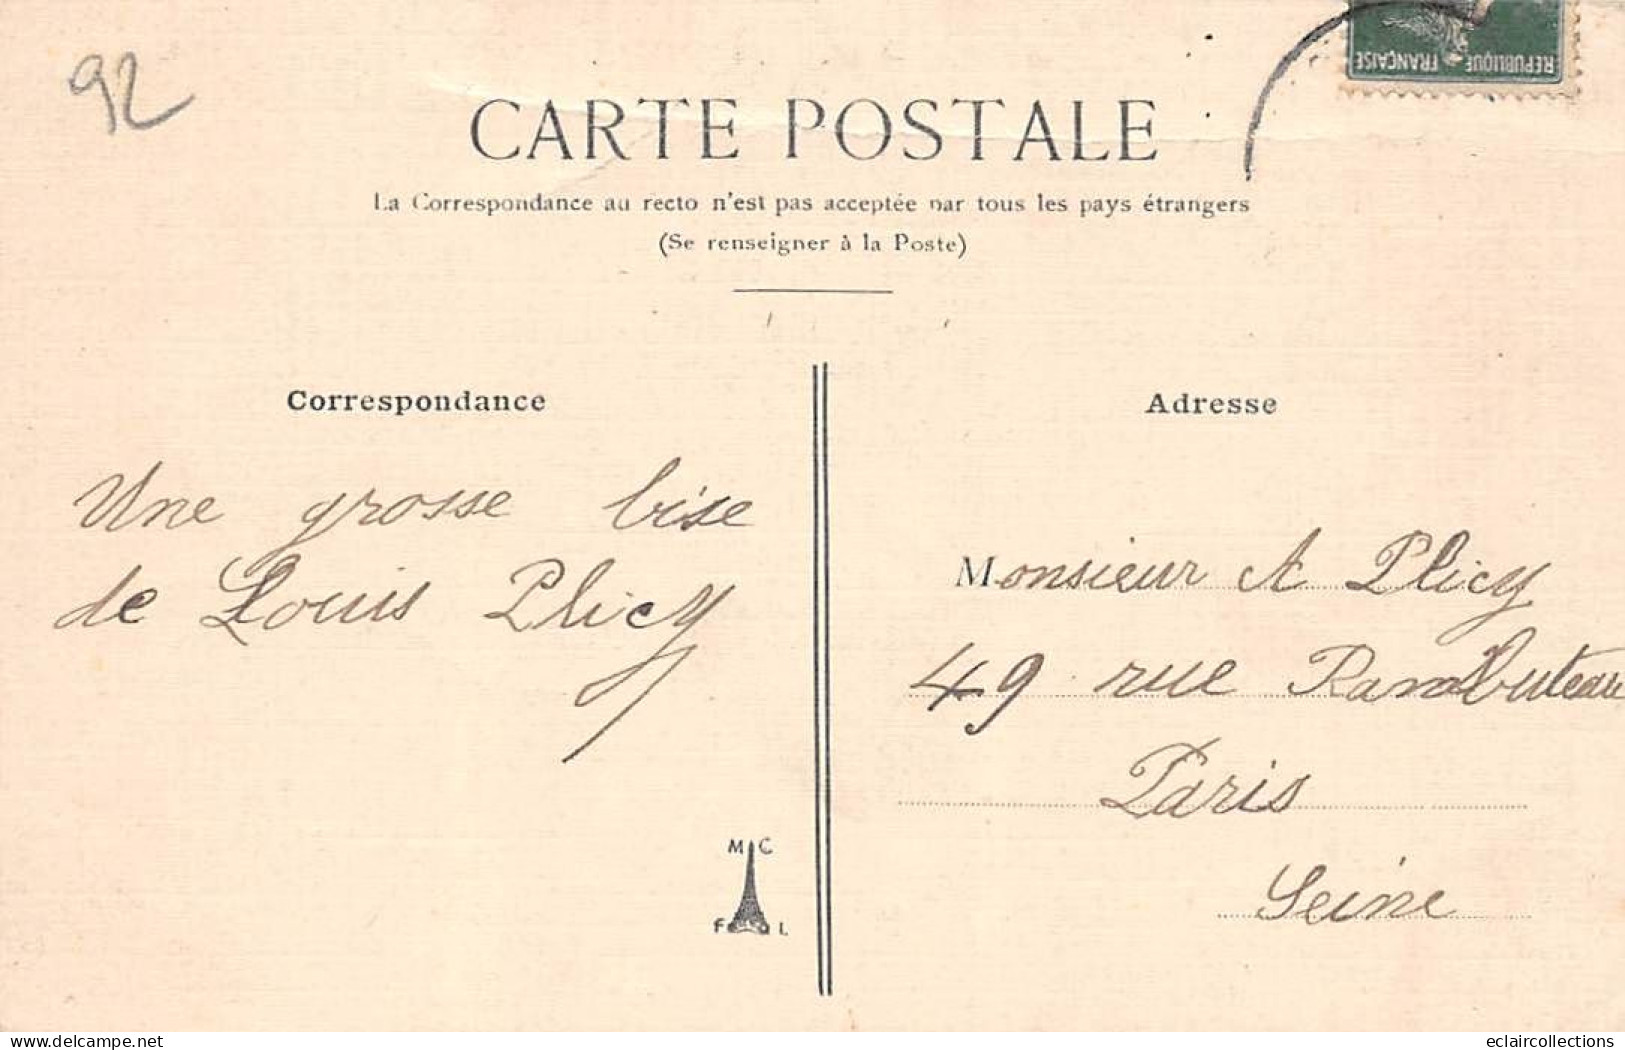 92
RÉPUBLIQUE FRANÇAISE
CARTE POSTALE
La Correspondance au recto n'est pas acceptée par tous les pays étrangers
(Se renseigner à la Poste)
Correspondance
Une grosse bise
de Louis Plicy
M C
F L
Adresse
Monsieur A Plicy
49 rue Rambuteau
Paris
Seine
delcampe.net
eclaircollections